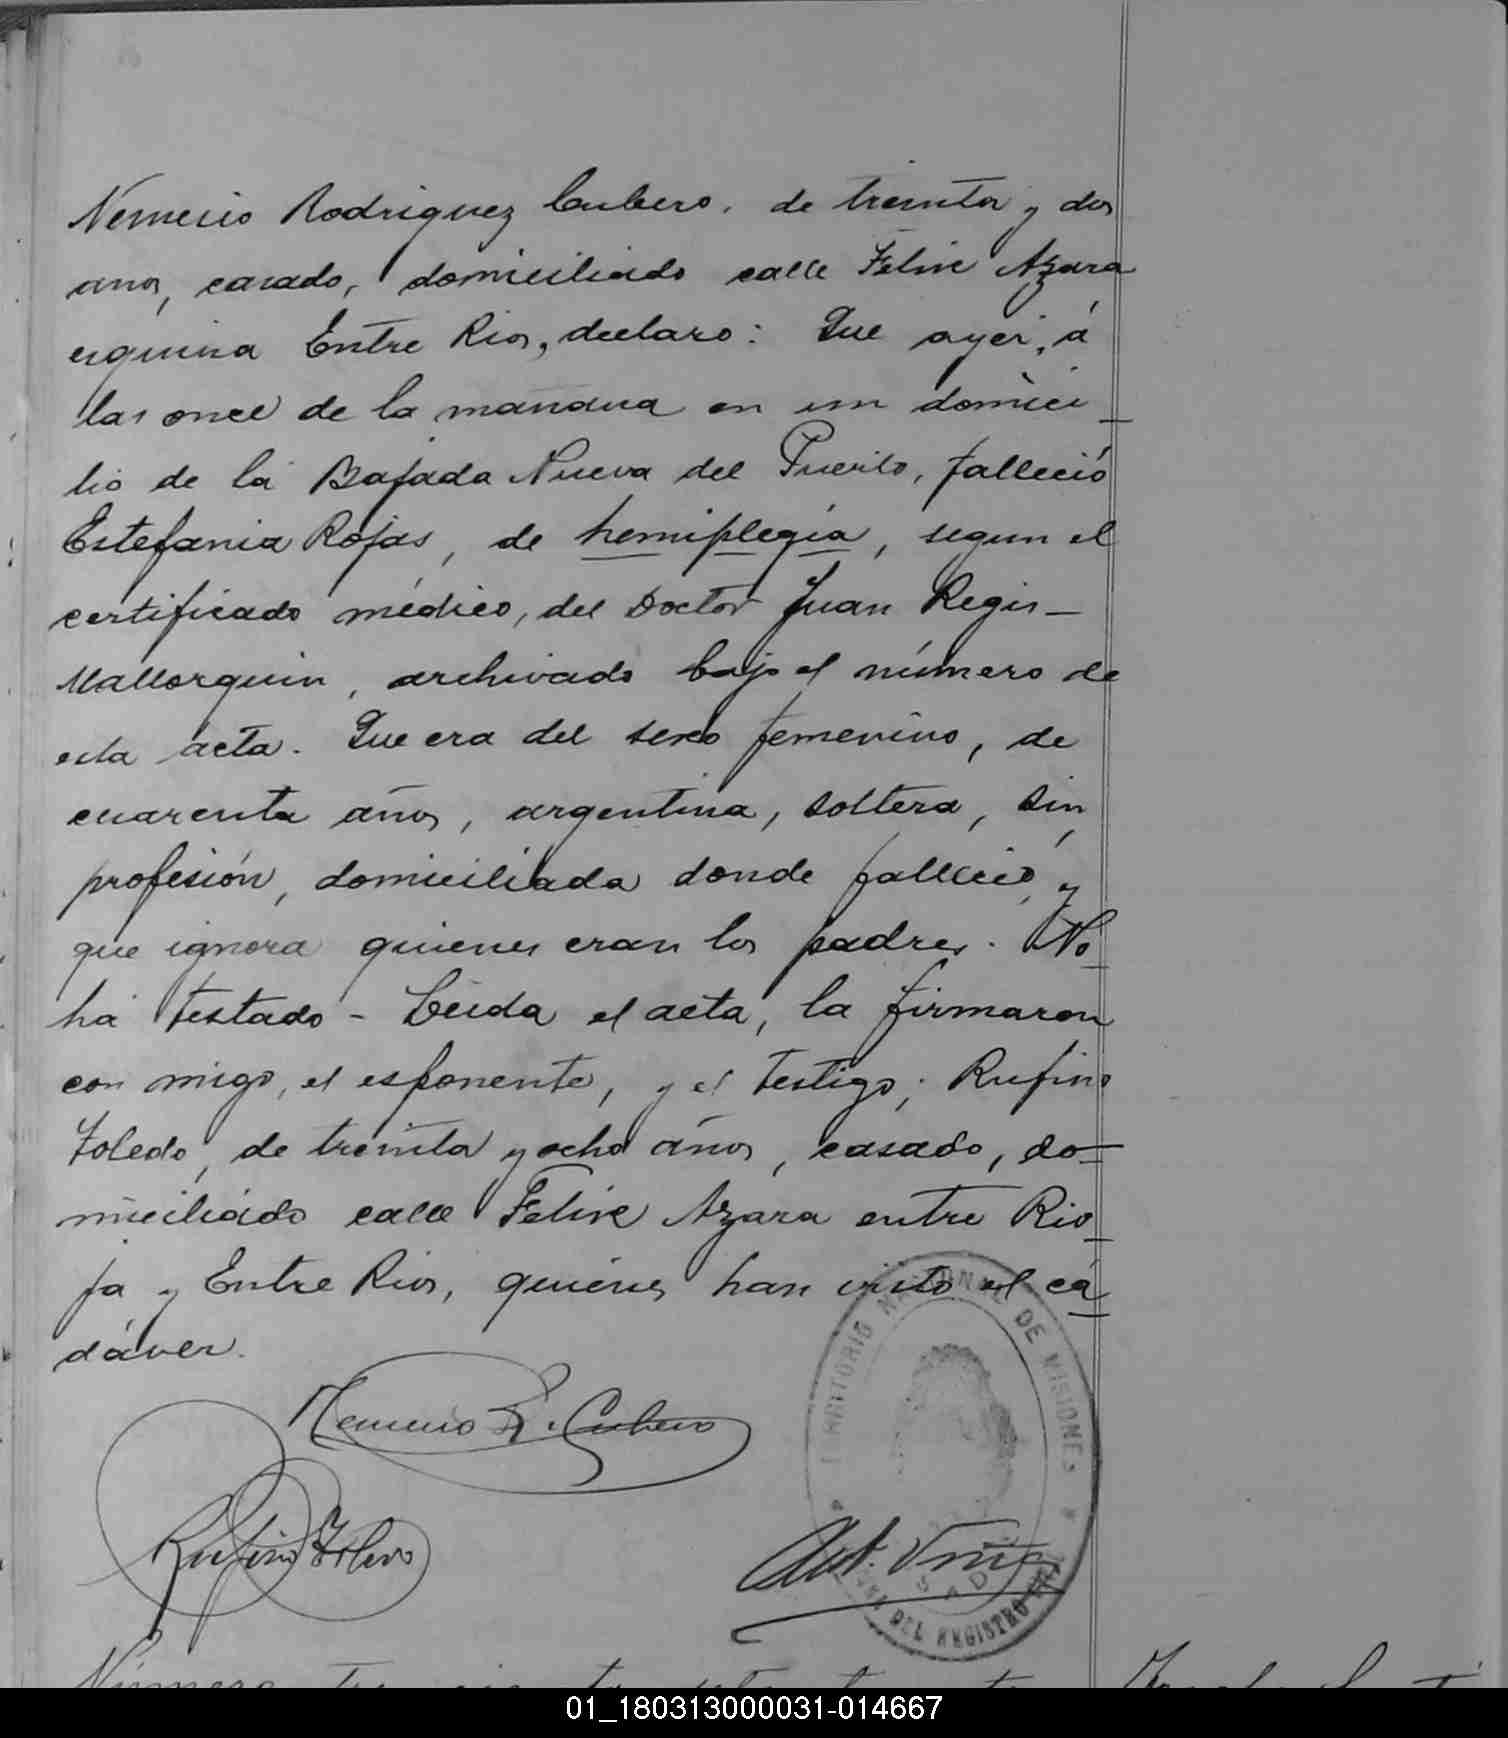 Nemecio Rodriguez Cubero, de treinta y dos
anos, casado, domiciliado calle Felix Azara
esquina Entre Rios, declaro: Que ayer, á
las once de la mañana en un domici
lio de la Bajada Nueva del Puerto, falleció
Estefania Rojas, de hemiplegia, segun el
certificado médico, del Doctor Juan Regis-
Mallorquin, archivado bajo el número de
esta acta. Que era del sexo femenino, de
cuarenta años, argentina, soltera, sin
profesión, domiciliada donde falleció, y
que ignora quienes eran los padres. No
há testado - Leida el acta, la firmaron
con migo, el esponente, y el testigo; Rufino
Toledo, de treinta y ocho años, casado, do-
miciliado calle Felix Azara entre Rio
ja y Entre Rios, quiénes han visto el cá
dáver.
Nemecio R. Cubero
Rufino Toledo
TERRITORIO NACIONAL DE MISIONES
DEL REGISTRO
Número
01_180313000031-014667